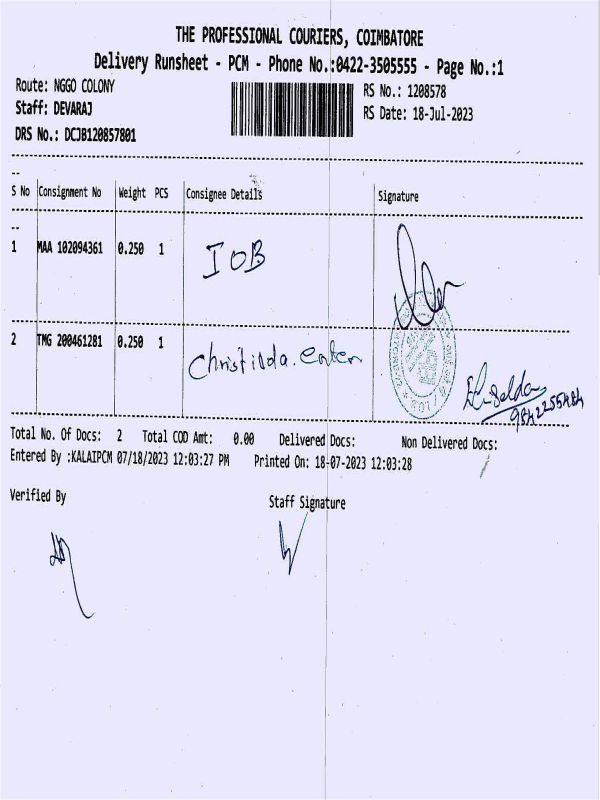 THE PROFESSIONAL COURIERS, COIMBATORE
Delivery Runsheet - PCM - Phone No.:0422-3505555 - Page No.:1
Route: NGGO COLONY RS No.: 1208578
Staff: DEVARAJ RS Date: 18-Jul-2023
DRS No.: DCJB120857801
--
S No Consignment No Weight PCS Consignee Details Signature
--
1 MAA 102094361 0.250 1 IOB
2 TMG 200461281 0.250 1 Christilda.
9842255484
Total No. Of Docs: 2 Total COD Amt: 0.00 Delivered Docs: Non Delivered Docs:
Entered By :KALAIPCM 07/18/2023 12:03:27 PM Printed On: 18-07-2023 12:03:28
Verified By Staff Signature